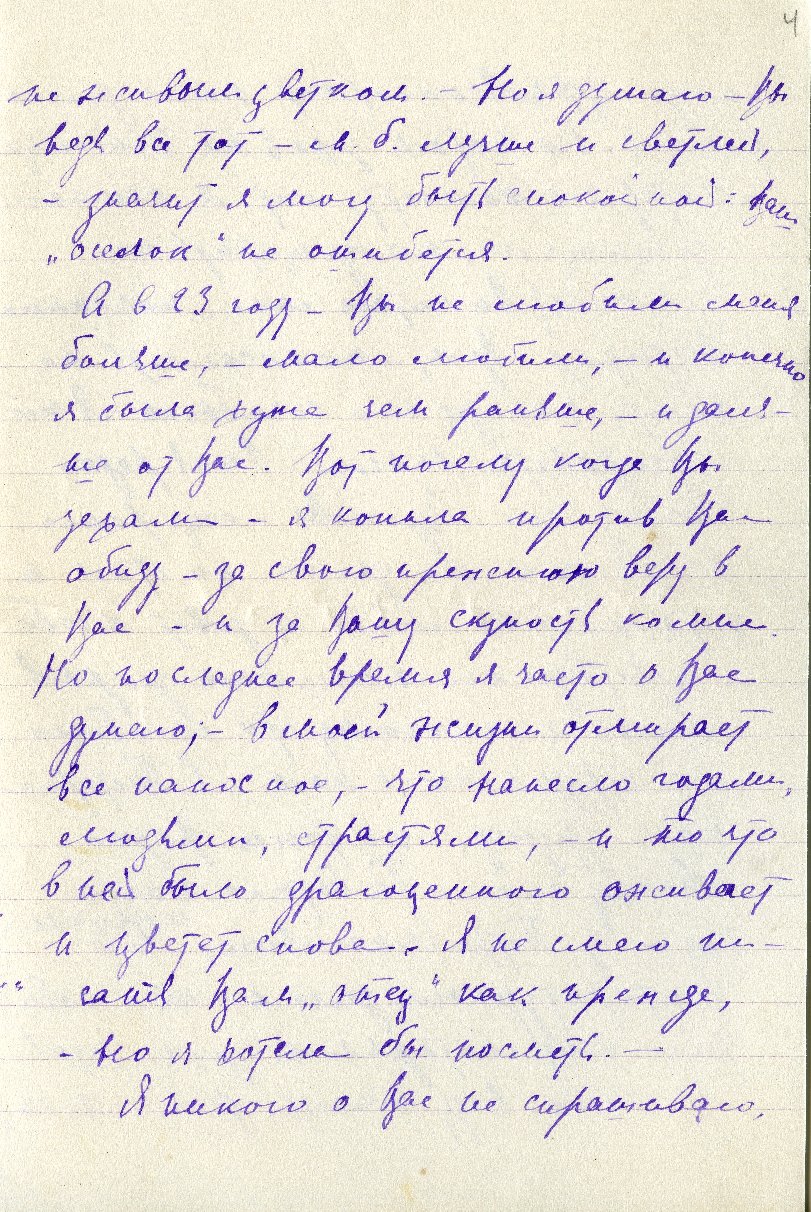 4
не живым цветком. – Но я думаю – Вы
ведь все тот – м. б. лучше и светлей,
– значит я могу быть спокойной: Ваш
„оселок“ не ошибется.
А в 23 году – Вы не любили меня
больше, – мало любили, – и конечно
я была хуже чем раньше, – и даль-
ше от Вас. Вот почему когда Вы
уехали – я копила против Вас
обиду – за свою прежнюю веру в
Вас – и за Вашу скупость ко мне.
Но последнее время я часто о Вас
думаю; – в моей жизни отмирает
все наносное, – что нанесло годами,
людьми, страстями, – и то что
в ней было драгоценного оживает
и цветет снова. Я не смею пи-
сать Вам „отец“ как прежде,
– но я хотела бы посметь. —
Я никого о Вас не спрашиваю,